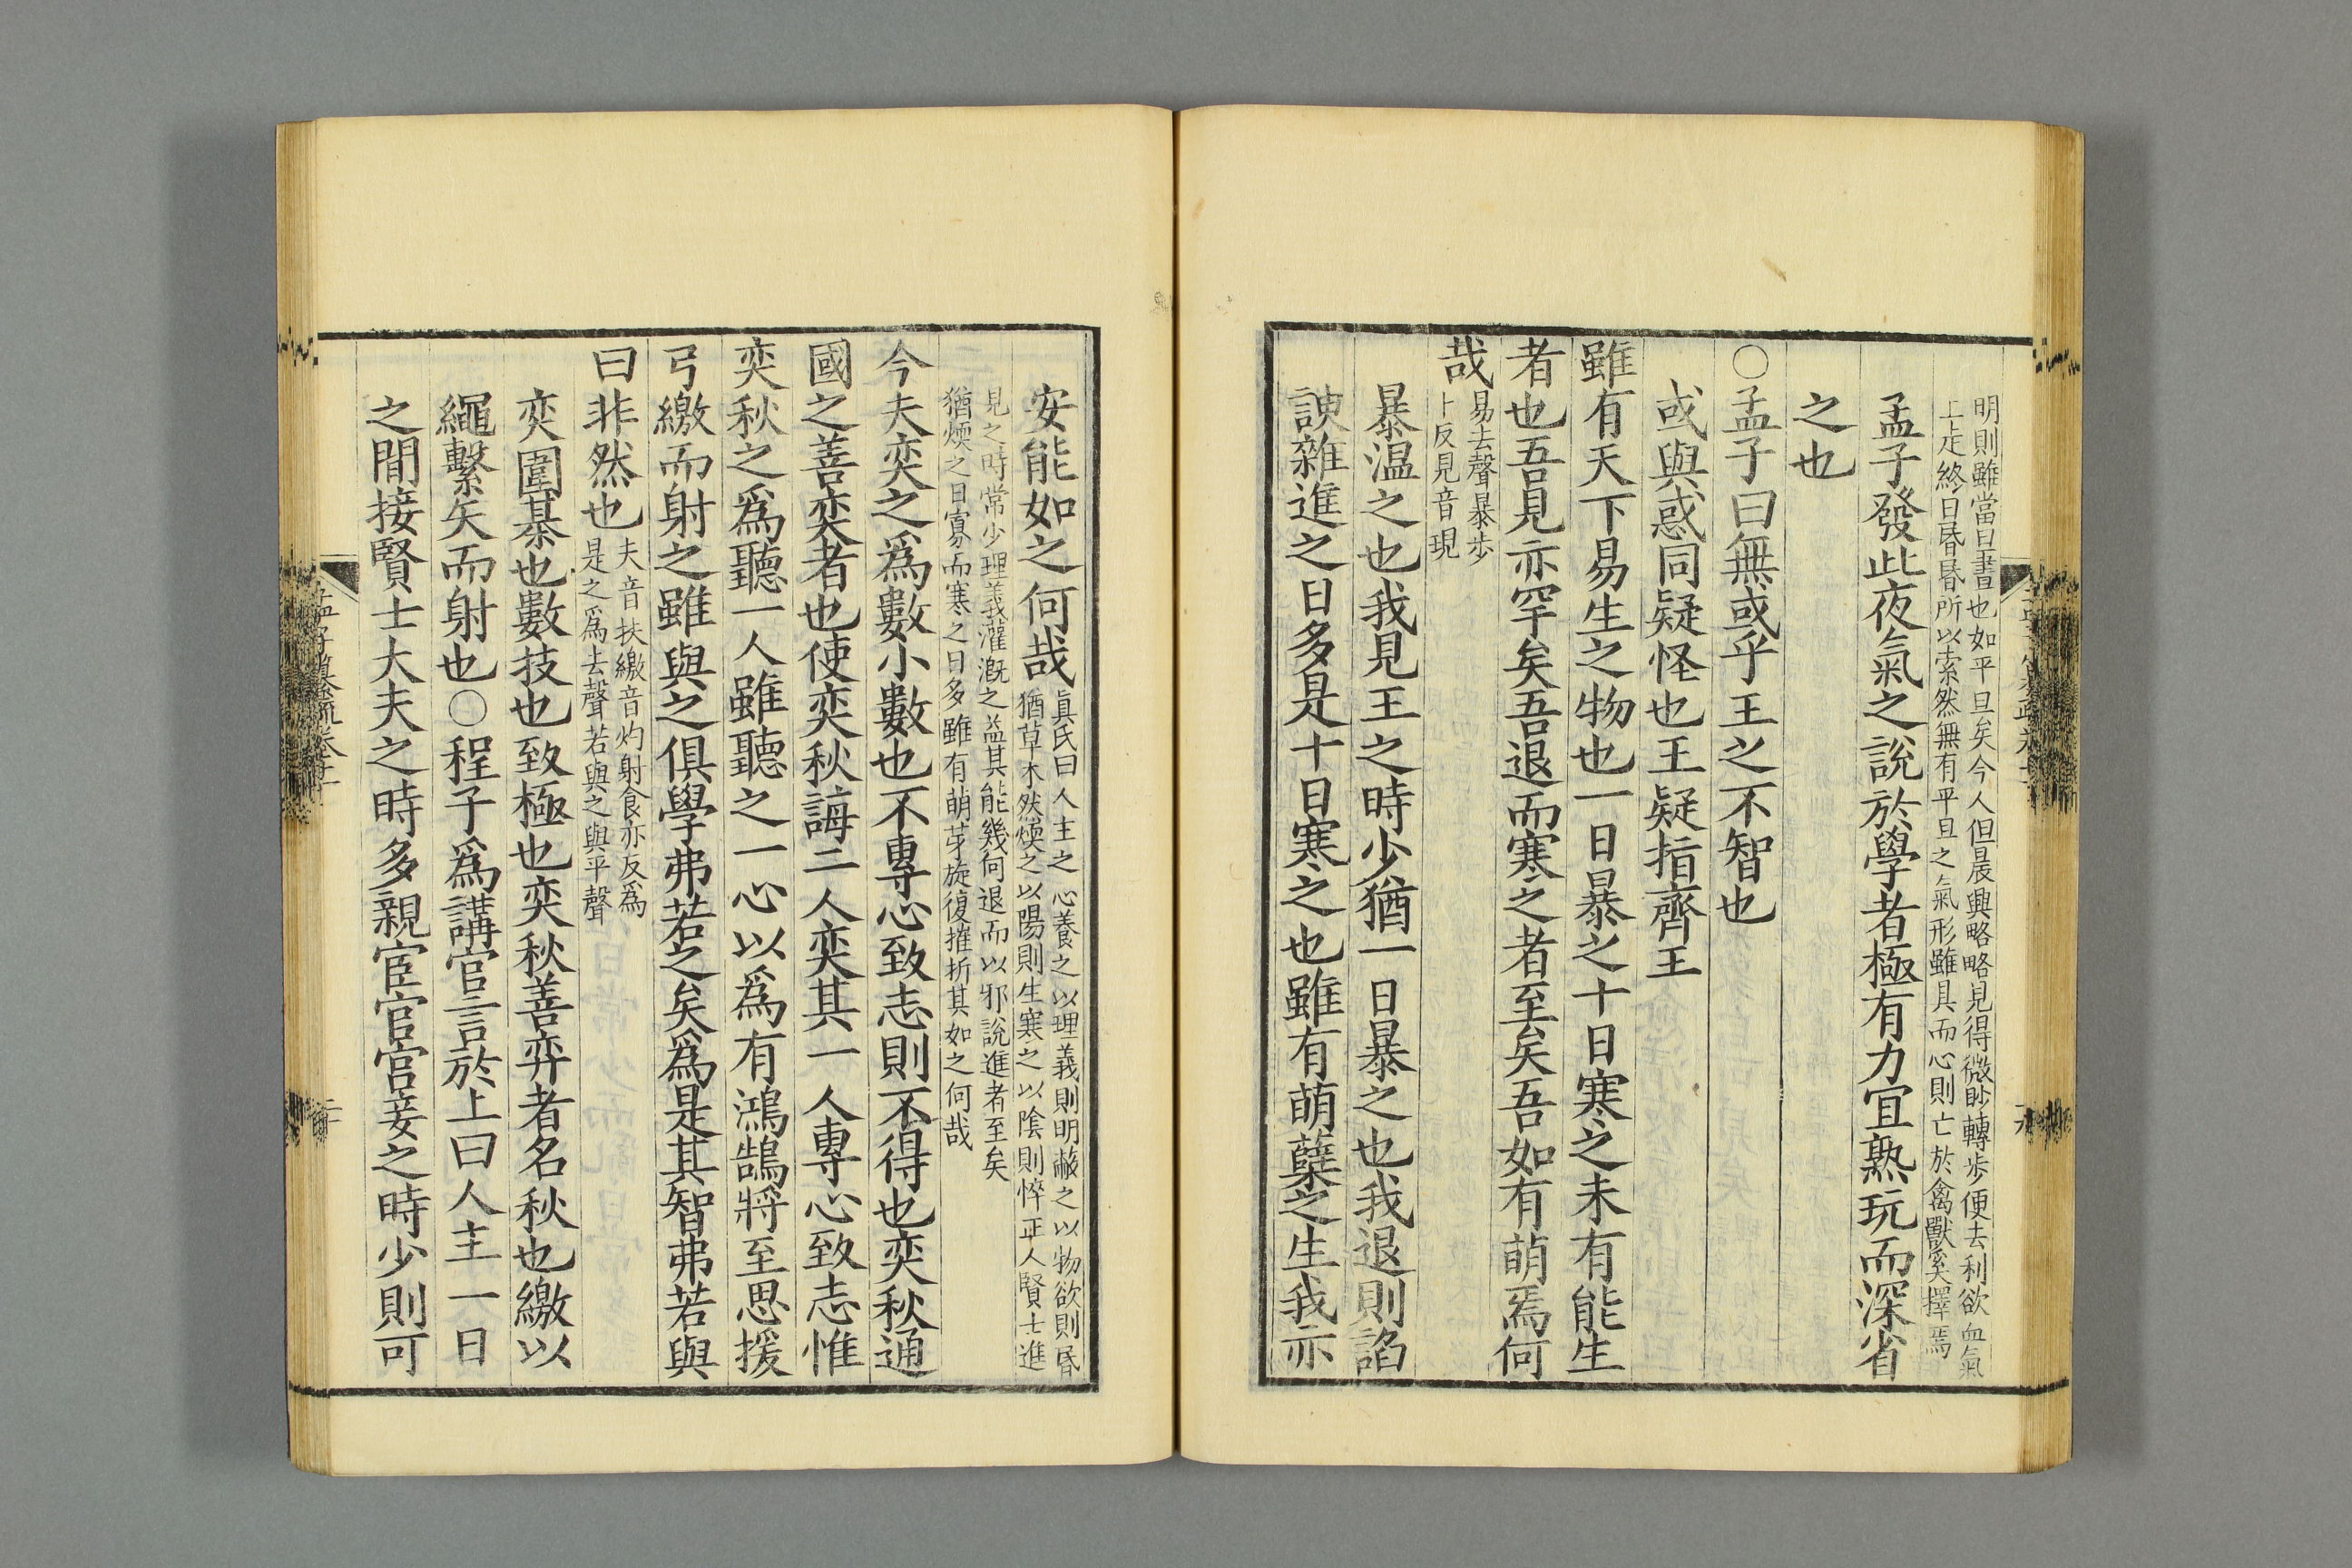 明則雖當旦晝也如平旦矣今人但晨興略略見得微眇轉步便去利欲血氣
上走終日昏昏所以索然無有平旦之氣形雖具而心則亡於禽獸奚擇焉
孟子發此夜氣之說於學者極有力宜熟玩而深省
之也
○孟子曰無或乎王之不智也
或與惑同疑怪也王疑指齊王
雖有天下易生之物也一日暴之十日寒之未有能生
者也吾見亦罕矣吾退而寒之者至矣吾如有萌焉何
哉易去聲暴步
卜反見音現
暴溫之也我見王之時少猶一日暴之也我退則諂
諛雜進之日多是十日寒之也雖有萌蘖之生我亦
安能如之何哉眞氏曰人主之心養之以理義則明蔽之以物欲則昏
猶草木然煖之以陽則生寒之以陰則悴正人賢士進
見之時常少理義灌溉之益其能幾何退而以邪說進者至矣
猶煖之日寡而寒之日多雖有萌芽旋復摧折其如之何哉
今夫奕之爲數小數也不專心致志則不得也奕秋通
國之善奕者也使奕秋誨二人奕其一人專心致志惟
奕秋之爲聽一人雖聽之一心以爲有鴻鵠將至思援
弓繳而射之雖與之俱學弗若之矣爲是其智弗若與
曰非然也夫音扶繳音灼射食亦反爲
是之爲去聲若與之與平聲
奕圍棊也數技也致極也奕秋善弈者名秋也繳以
繩繫矢而射也○程子爲講官言於上曰人主一日
之間接賢士大夫之時多親宦官宮妾之時少則可